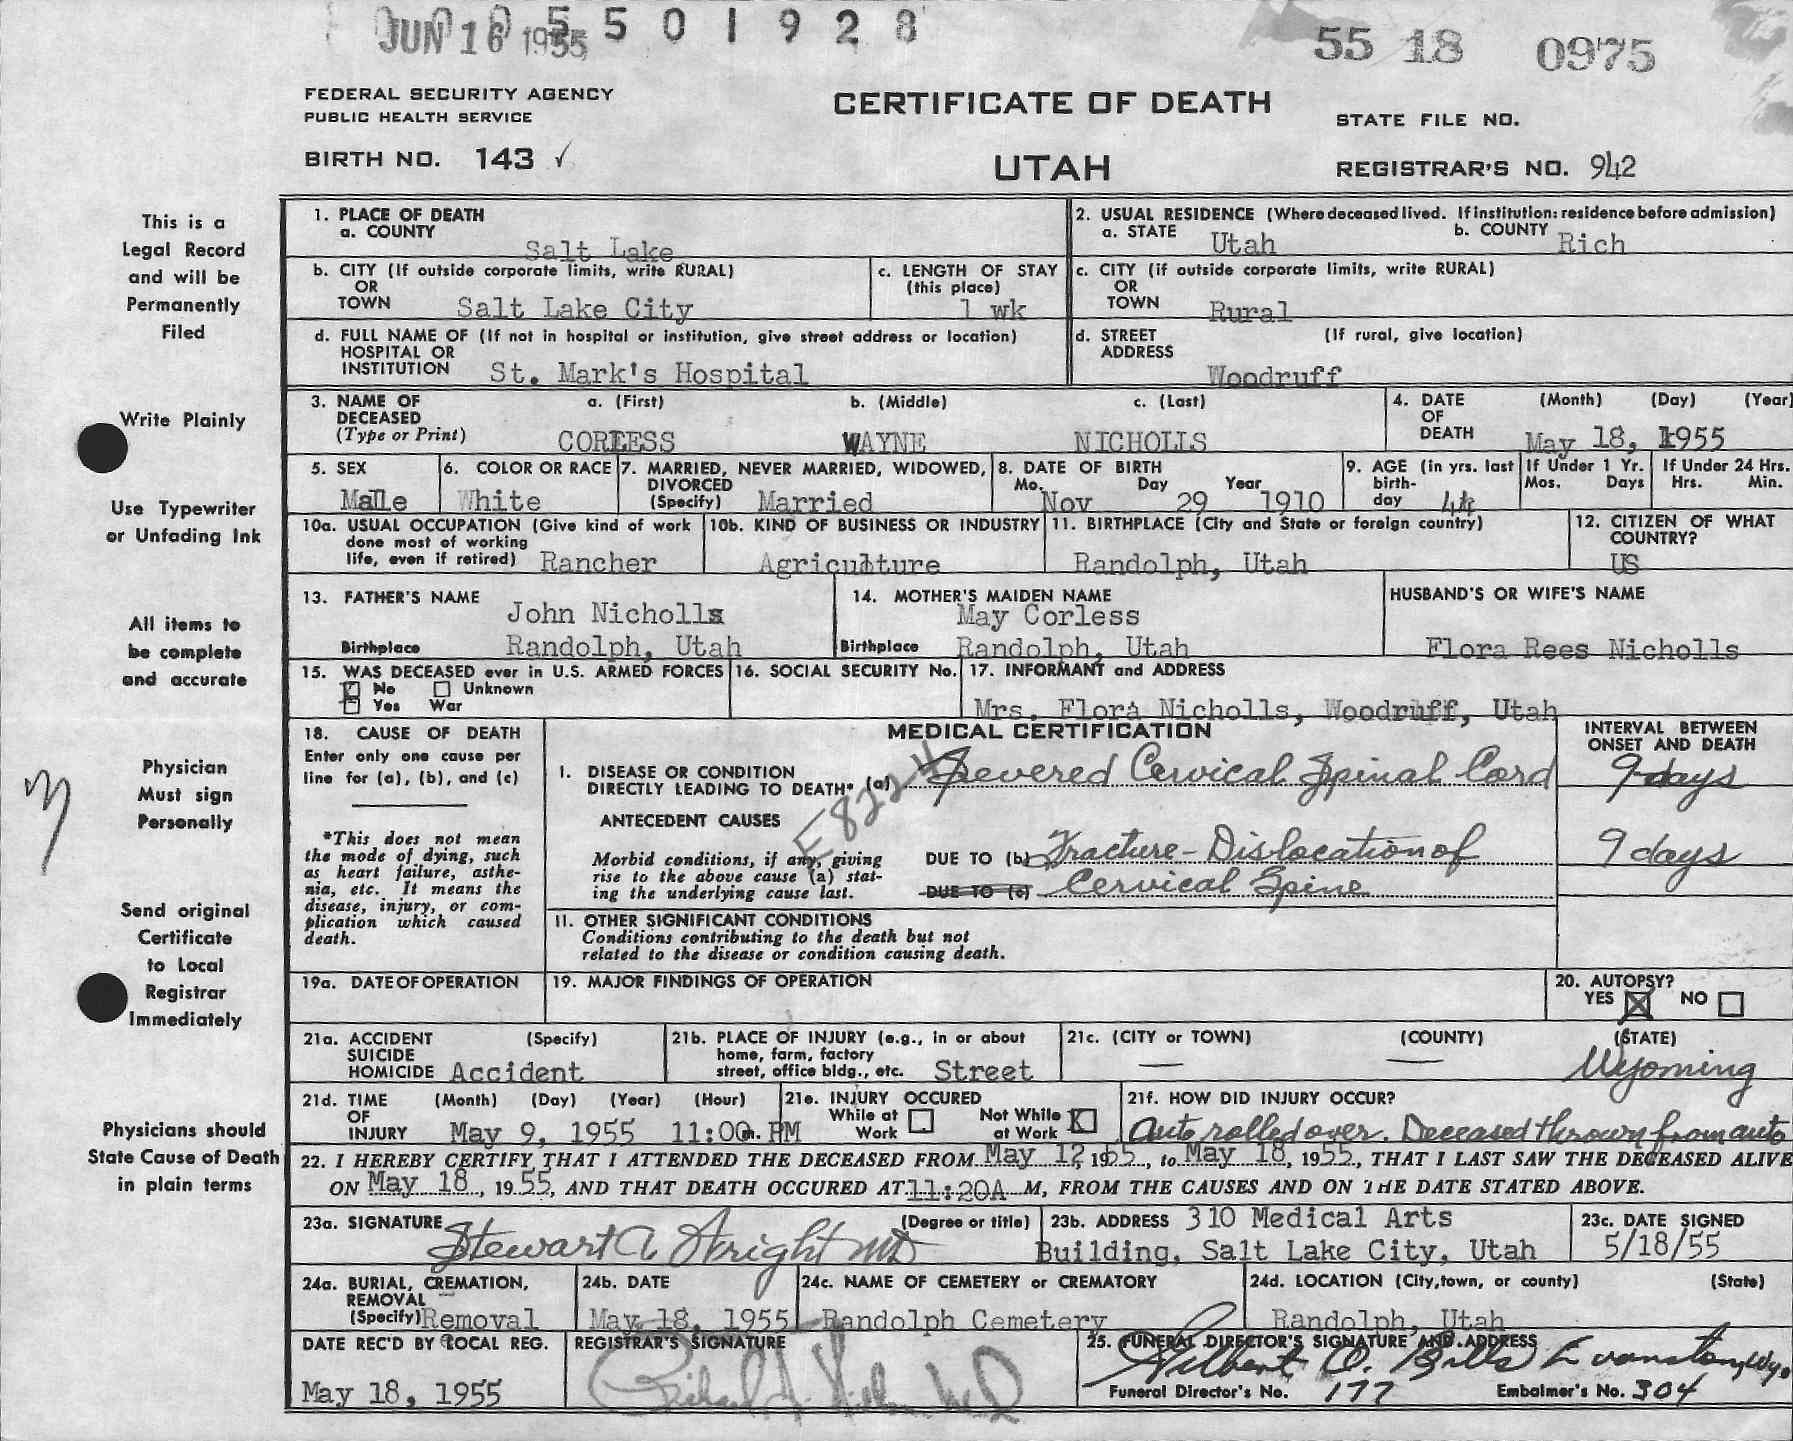 JUN 16 1955 5 5 0 1 9 2 8
55 18 0975
FEDERAL SECURITY AGENCY
PUBLIC HEALTH SERVICE
CERTIFICATE OF DEATH
STATE FILE NO.
BIRTH NO. 143 ✓
UTAH
REGISTRAR'S NO. 942
This is a
Legal Record
and will be
Permanently
Filed
Write Plainly
Use Typewriter
or Unfading Ink
All items to
be complete
and accurate
Physician
Must sign
Personally
Send original
Certificate
to Local
Registrar
Immediately
Physicians should
State Cause of Death
in plain terms
1. PLACE OF DEATH
a. COUNTY
Salt Lake
2. USUAL RESIDENCE (Where deceased lived. If institution: residence before admission)
a. STATE Utah b. COUNTY Rich
b. CITY (If outside corporate limits, write RURAL)
OR
TOWN Salt Lake City
c. LENGTH OF STAY
(this place)
1 wk
c. CITY (if outside corporate limits, write RURAL)
OR
TOWN Rural
d. FULL NAME OF (If not in hospital or institution, give street address or location)
HOSPITAL OR
INSTITUTION St. Mark's Hospital
d. STREET (If rural, give location)
ADDRESS
Woodruff
3. NAME OF a. (First) b. (Middle) c. (Last)
DECEASED
(Type or Print) CORLESS WAYNE NICHOLLS
4. DATE (Month) (Day) (Year)
OF
DEATH May 18, 1955
5. SEX
Male
6. COLOR OR RACE
White
7. MARRIED, NEVER MARRIED, WIDOWED,
DIVORCED
(Specify) Married
8. DATE OF BIRTH
Mo. Day Year
Nov 29 1910
9. AGE (in yrs. last
birth-
day 44
If Under 1 Yr.
Mos. Days
If Under 24 Hrs.
Hrs. Min.
10a. USUAL OCCUPATION (Give kind of work
done most of working
life, even if retired) Rancher
10b. KIND OF BUSINESS OR INDUSTRY
Agriculture
11. BIRTHPLACE (City and State or foreign country)
Randolph, Utah
12. CITIZEN OF WHAT
COUNTRY?
US
13. FATHER'S NAME
John Nicholls
Birthplace Randolph, Utah
14. MOTHER'S MAIDEN NAME
May Corless
Birthplace Randolph, Utah
HUSBAND'S OR WIFE'S NAME
Flora Rees Nicholls
15. WAS DECEASED ever in U.S. ARMED FORCES
No Unknown
Yes War
16. SOCIAL SECURITY No.
17. INFORMANT and ADDRESS
Mrs. Flora Nicholls, Woodruff, Utah
18. CAUSE OF DEATH
Enter only one cause per
line for (a), (b), and (c)
*This does not mean
the mode of dying, such
as heart failure, asthe-
nia, etc. It means the
disease, injury, or com-
plication which caused
death.
MEDICAL CERTIFICATION
INTERVAL BETWEEN
ONSET AND DEATH
I. DISEASE OR CONDITION
DIRECTLY LEADING TO DEATH* (a) Severed Cervical Spinal Cord 9 days
ANTECEDENT CAUSES
Morbid conditions, if any, giving
rise to the above cause (a) stat-
ing the underlying cause last.
DUE TO (b) Fracture-Dislocation of 9 days
DUE TO (c) Cervical Spine
II. OTHER SIGNIFICANT CONDITIONS
Conditions contributing to the death but not
related to the disease or condition causing death.
19a. DATE OF OPERATION
19. MAJOR FINDINGS OF OPERATION
20. AUTOPSY?
YES NO
21a. ACCIDENT (Specify)
SUICIDE
HOMICIDE Accident
21b. PLACE OF INJURY (e.g., in or about
home, farm, factory
street, office bldg., etc. Street
21c. (CITY or TOWN) (COUNTY) (STATE)
— — Wyoming
21d. TIME (Month) (Day) (Year) (Hour)
OF
INJURY May 9, 1955 11:00m. PM
21e. INJURY OCCURED
While at Not While
Work at Work
21f. HOW DID INJURY OCCUR?
Auto rolled over. Deceased thrown from auto
22. I HEREBY CERTIFY THAT I ATTENDED THE DECEASED FROM May 12, 1955, to May 18, 1955, THAT I LAST SAW THE DECEASED ALIVE
ON May 18, 1955, AND THAT DEATH OCCURED AT 11:20A M, FROM THE CAUSES AND ON THE DATE STATED ABOVE.
23a. SIGNATURE (Degree or title)
Stewart A Wright MD
23b. ADDRESS 310 Medical Arts
Building, Salt Lake City, Utah
23c. DATE SIGNED
5/18/55
24a. BURIAL, CREMATION,
REMOVAL
(Specify) Removal
24b. DATE
May 18, 1955
24c. NAME OF CEMETERY or CREMATORY
Randolph Cemetery
24d. LOCATION (City, town, or county) (State)
Randolph, Utah
DATE REC'D BY LOCAL REG.
May 18, 1955
REGISTRAR'S SIGNATURE
25. FUNERAL DIRECTOR'S SIGNATURE AND ADDRESS
O. Bills Evanston, Wy.
Funeral Director's No. 177 Embalmer's No. 304